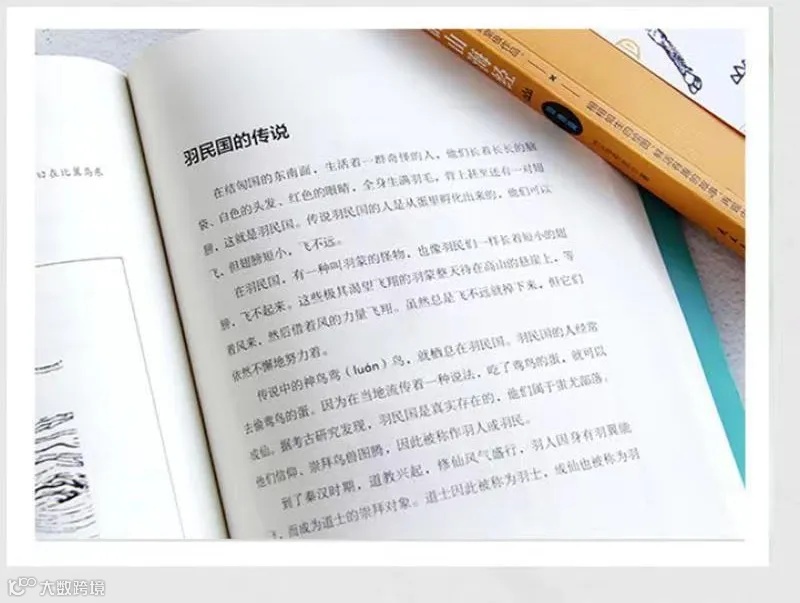 幻在比翼鸟东
羽民国的传说
在结匈国的东南面，生活着一群奇怪的人，他们长着长长的脑
袋、白色的头发、红色的眼睛，全身生满羽毛，背上甚至还有一对翅
膀，这就是羽民国。传说羽民国的人是从蛋里孵化出来的，他们可以
飞，但翅膀短小，飞不远。
在羽民国，有一种叫羽蒙的怪物，也像羽民们一样长着短小的翅
膀，飞不起来。这些极其渴望飞翔的羽蒙整天待在高山的悬崖上，等
着风来，然后借着风的力量飞翔。虽然总是飞不远就掉下来，但它们
依然不懈地努力着。
传说中的神鸟鸾（luán）鸟，就栖息在羽民国。羽民国的人经常
去偷鸾鸟的蛋。因为在当地流传着一种说法，吃了鸾鸟的蛋，就可以
成仙。据考古研究发现，羽民国是真实存在的，他们属于蚩尤部落。
他们信仰、崇拜鸟兽图腾，因此被称作羽人或羽民。
到了秦汉时期，道教兴起，修仙风气盛行，羽人因身有羽翼能
飞，而成为道士的崇拜对象。道士因此被称为羽士，成仙也被称为羽
山海经
大数跨境